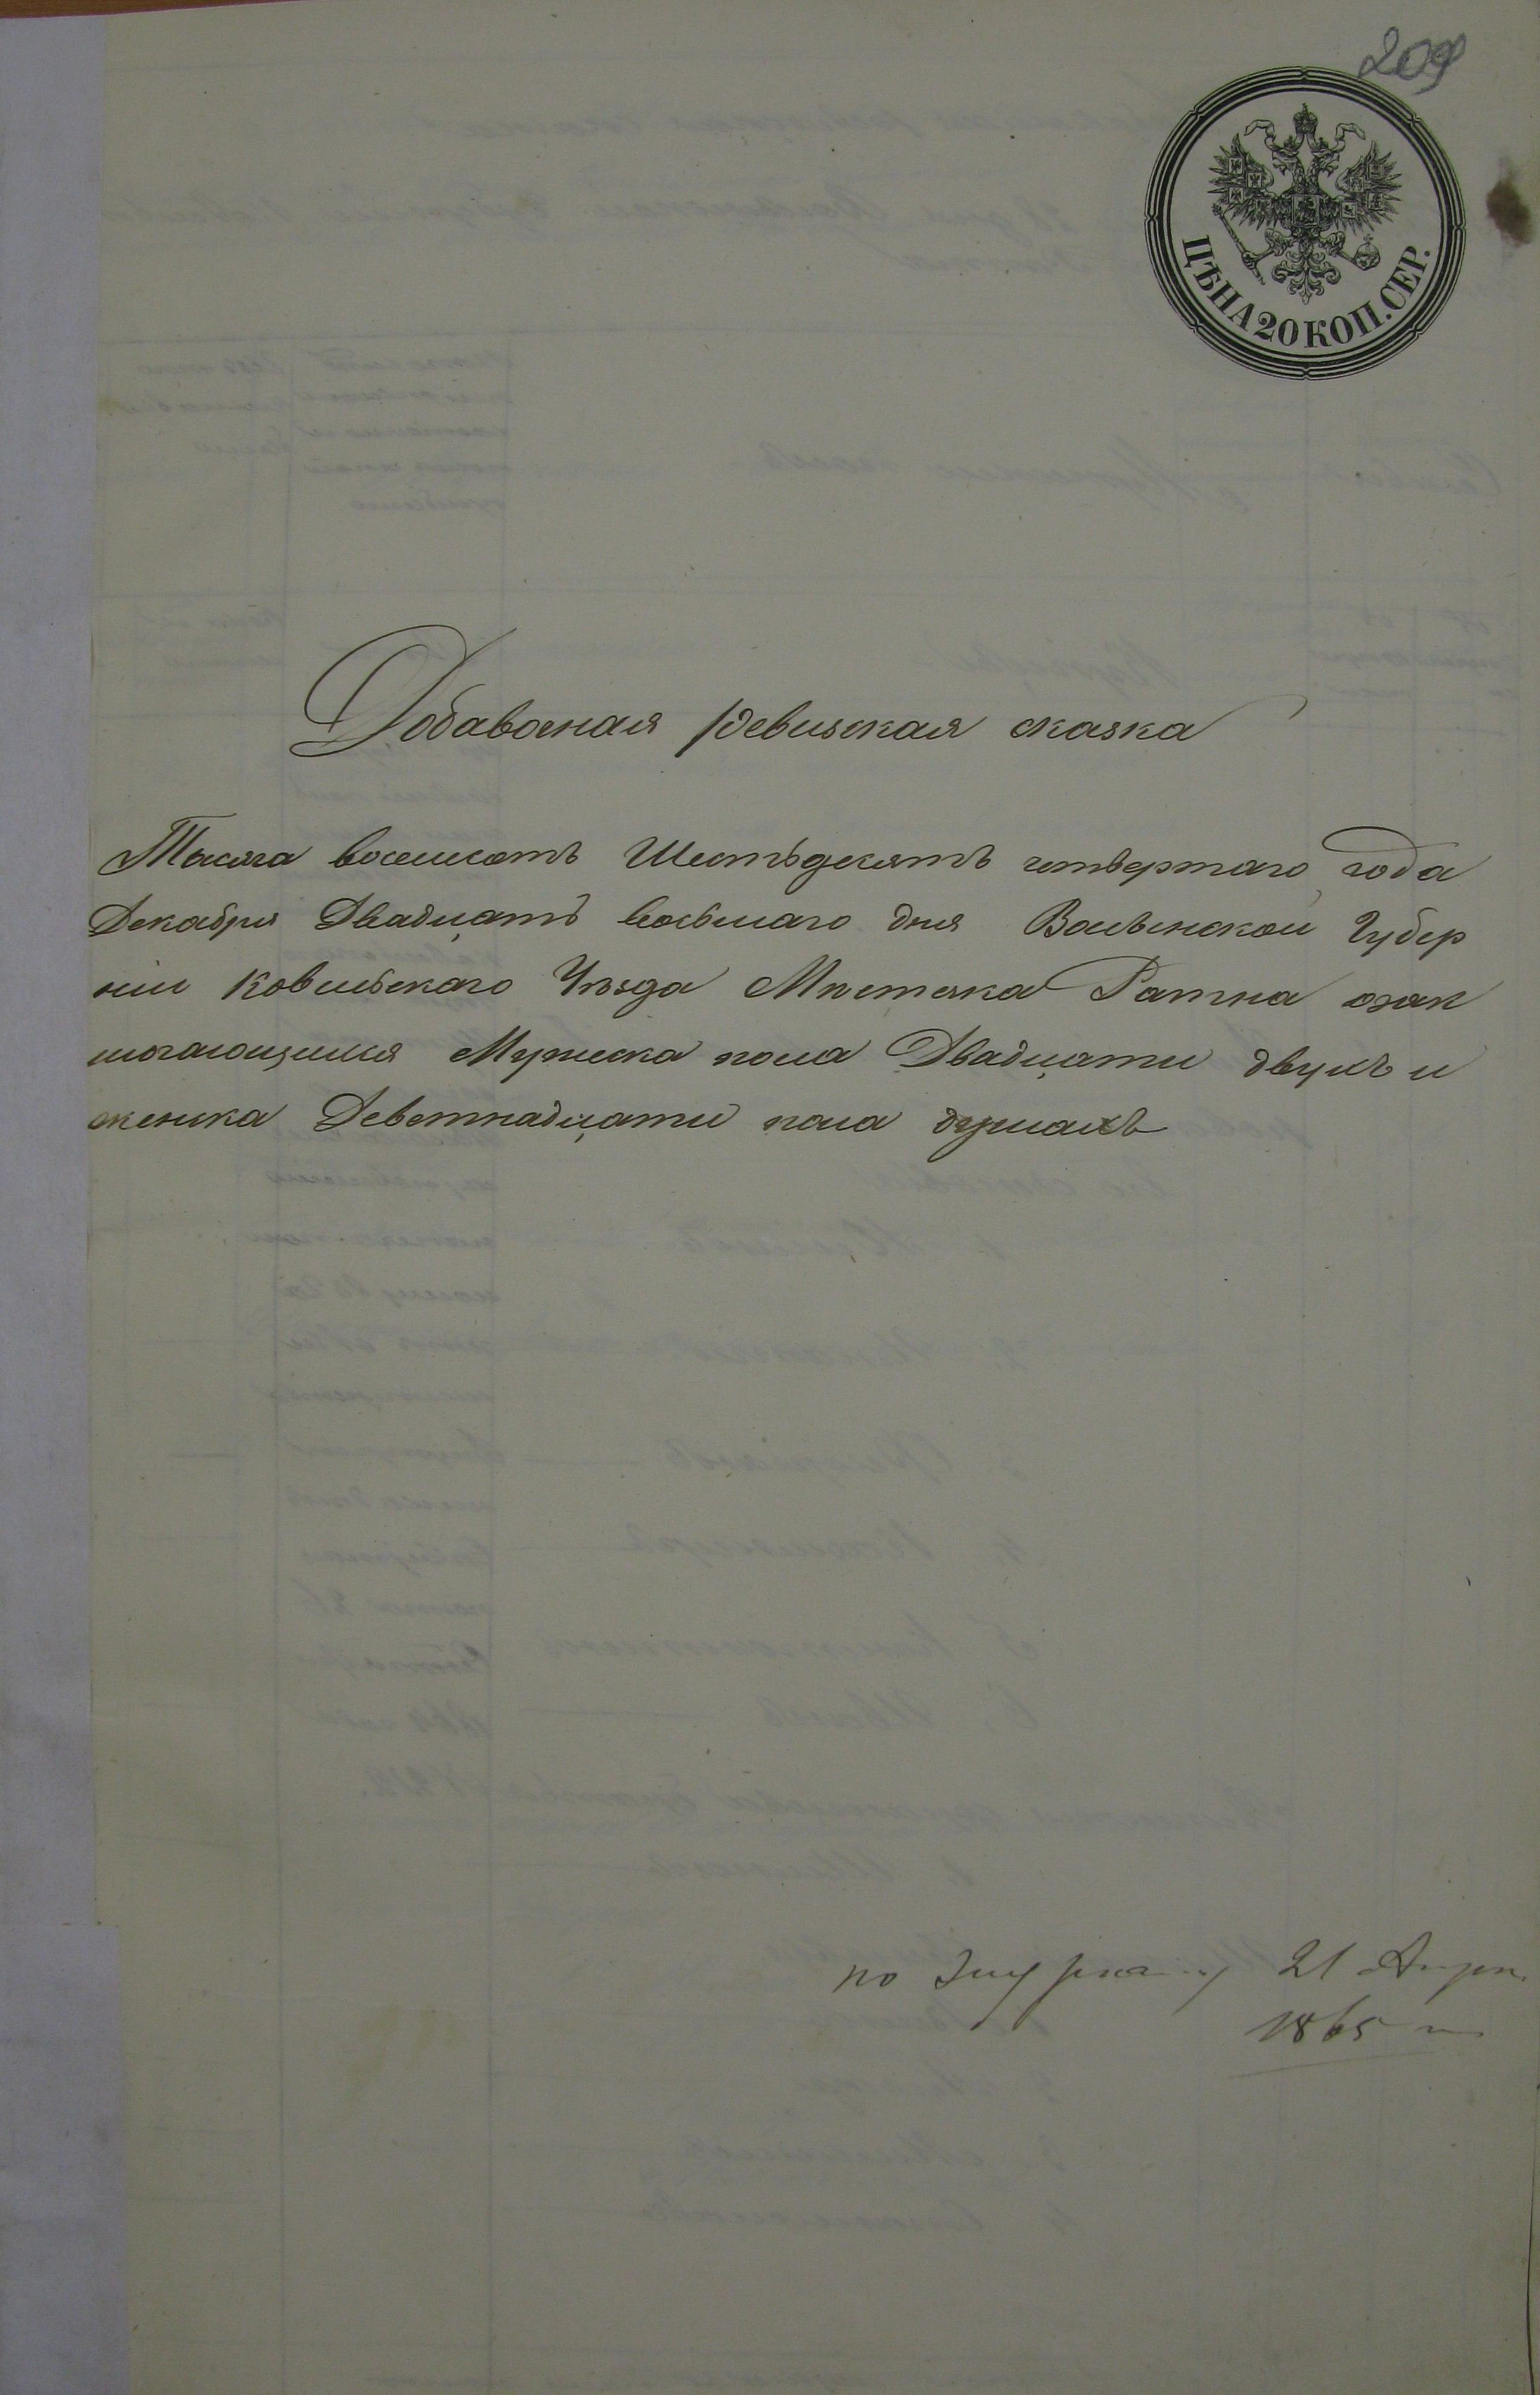 209
ЦѢНА 20 КОП. СЕР.
Добавочная ревизская сказка
Тысяча восемсотъ Шестьдесятъ четвертаго года
Декабря Двадцать восьмаго дня Волынской Губер
ніи Ковельскаго Уѣзда Мѣстечка Ратна о
Мужеска пола Двадцати двухъ и
женска Деветнадцати пола душахъ
по 21
1865